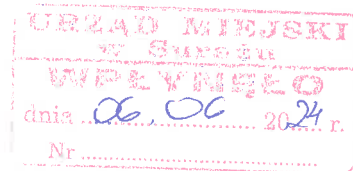 URZĄD MIEJSKI
w Surażu
WPŁYNĘŁO
dnia 06.06 2024 r.
Nr